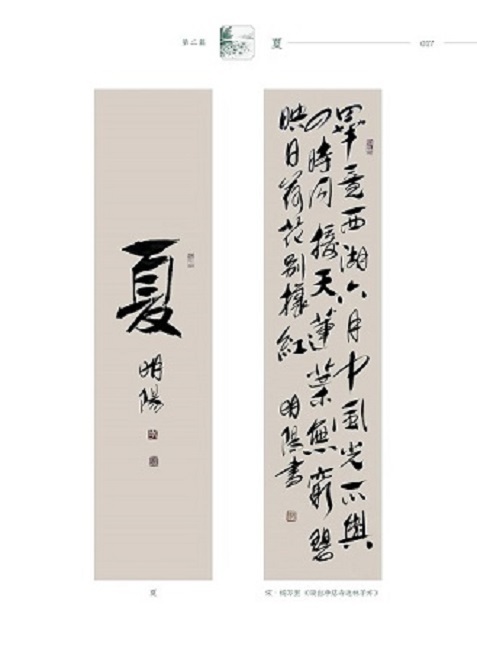 夏
夏
明陽
畢竟西湖六月中風光不與
四時同接天蓮葉無窮碧
映日荷花別樣紅 明陽書
夏
宋·杨万里《晓出净慈寺送林子方》